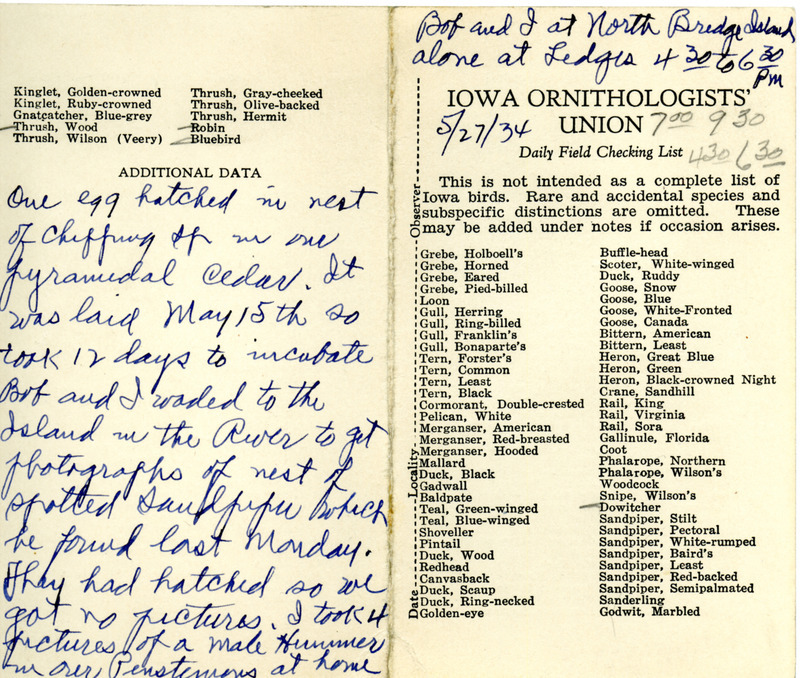 Kinglet, Golden-crowned
Kinglet, Ruby-crowned
Gnatcatcher, Blue-grey
Thrush, Wood
Thrush, Wilson (Veery)
Thrush, Gray-cheeked
Thrush, Olive-backed
Thrush, Hermit
Robin
Bluebird
ADDITIONAL DATA
One egg hatched in nest
of Chipping Sp in our
pyramidal cedar. It
was laid May 15th so
took 12 days to incubate
Bob and I waded to the
Island in the River to get
photographs of nest of
spotted sandpiper which
he found last Monday.
They had hatched so we
got no pictures. I took 4
pictures of a male Hummer
in our Penstemons at home
Bob and I at North Bredge Island
alone at Ledges 4 30 to 6 30
Pm
IOWA ORNITHOLOGISTS'
UNION 7 00 9 30
5/27/34
Daily Field Checking List 4 30 6 30
This is not intended as a complete list of
Iowa birds. Rare and accidental species and
subspecific distinctions are omitted. These
may be added under notes if occasion arises.
Date Locality Observer
Grebe, Holboell's
Grebe, Horned
Grebe, Eared
Grebe, Pied-billed
Loon
Gull, Herring
Gull, Ring-billed
Gull, Franklin's
Gull, Bonaparte's
Tern, Forster's
Tern, Common
Tern, Least
Tern, Black
Cormorant, Double-crested
Pelican, White
Merganser, American
Merganser, Red-breasted
Merganser, Hooded
Mallard
Duck, Black
Gadwall
Baldpate
Teal, Green-winged
Teal, Blue-winged
Shoveller
Pintail
Duck, Wood
Redhead
Canvasback
Duck, Scaup
Duck, Ring-necked
Golden-eye
Buffle-head
Scoter, White-winged
Duck, Ruddy
Goose, Snow
Goose, Blue
Goose, White-Fronted
Goose, Canada
Bittern, American
Bittern, Least
Heron, Great Blue
Heron, Green
Heron, Black-crowned Night
Crane, Sandhill
Rail, King
Rail, Virginia
Rail, Sora
Gallinule, Florida
Coot
Phalarope, Northern
Phalarope, Wilson's
Woodcock
Snipe, Wilson's
Dowitcher
Sandpiper, Stilt
Sandpiper, Pectoral
Sandpiper, White-rumped
Sandpiper, Baird's
Sandpiper, Least
Sandpiper, Red-backed
Sandpiper, Semipalmated
Sanderling
Godwit, Marbled